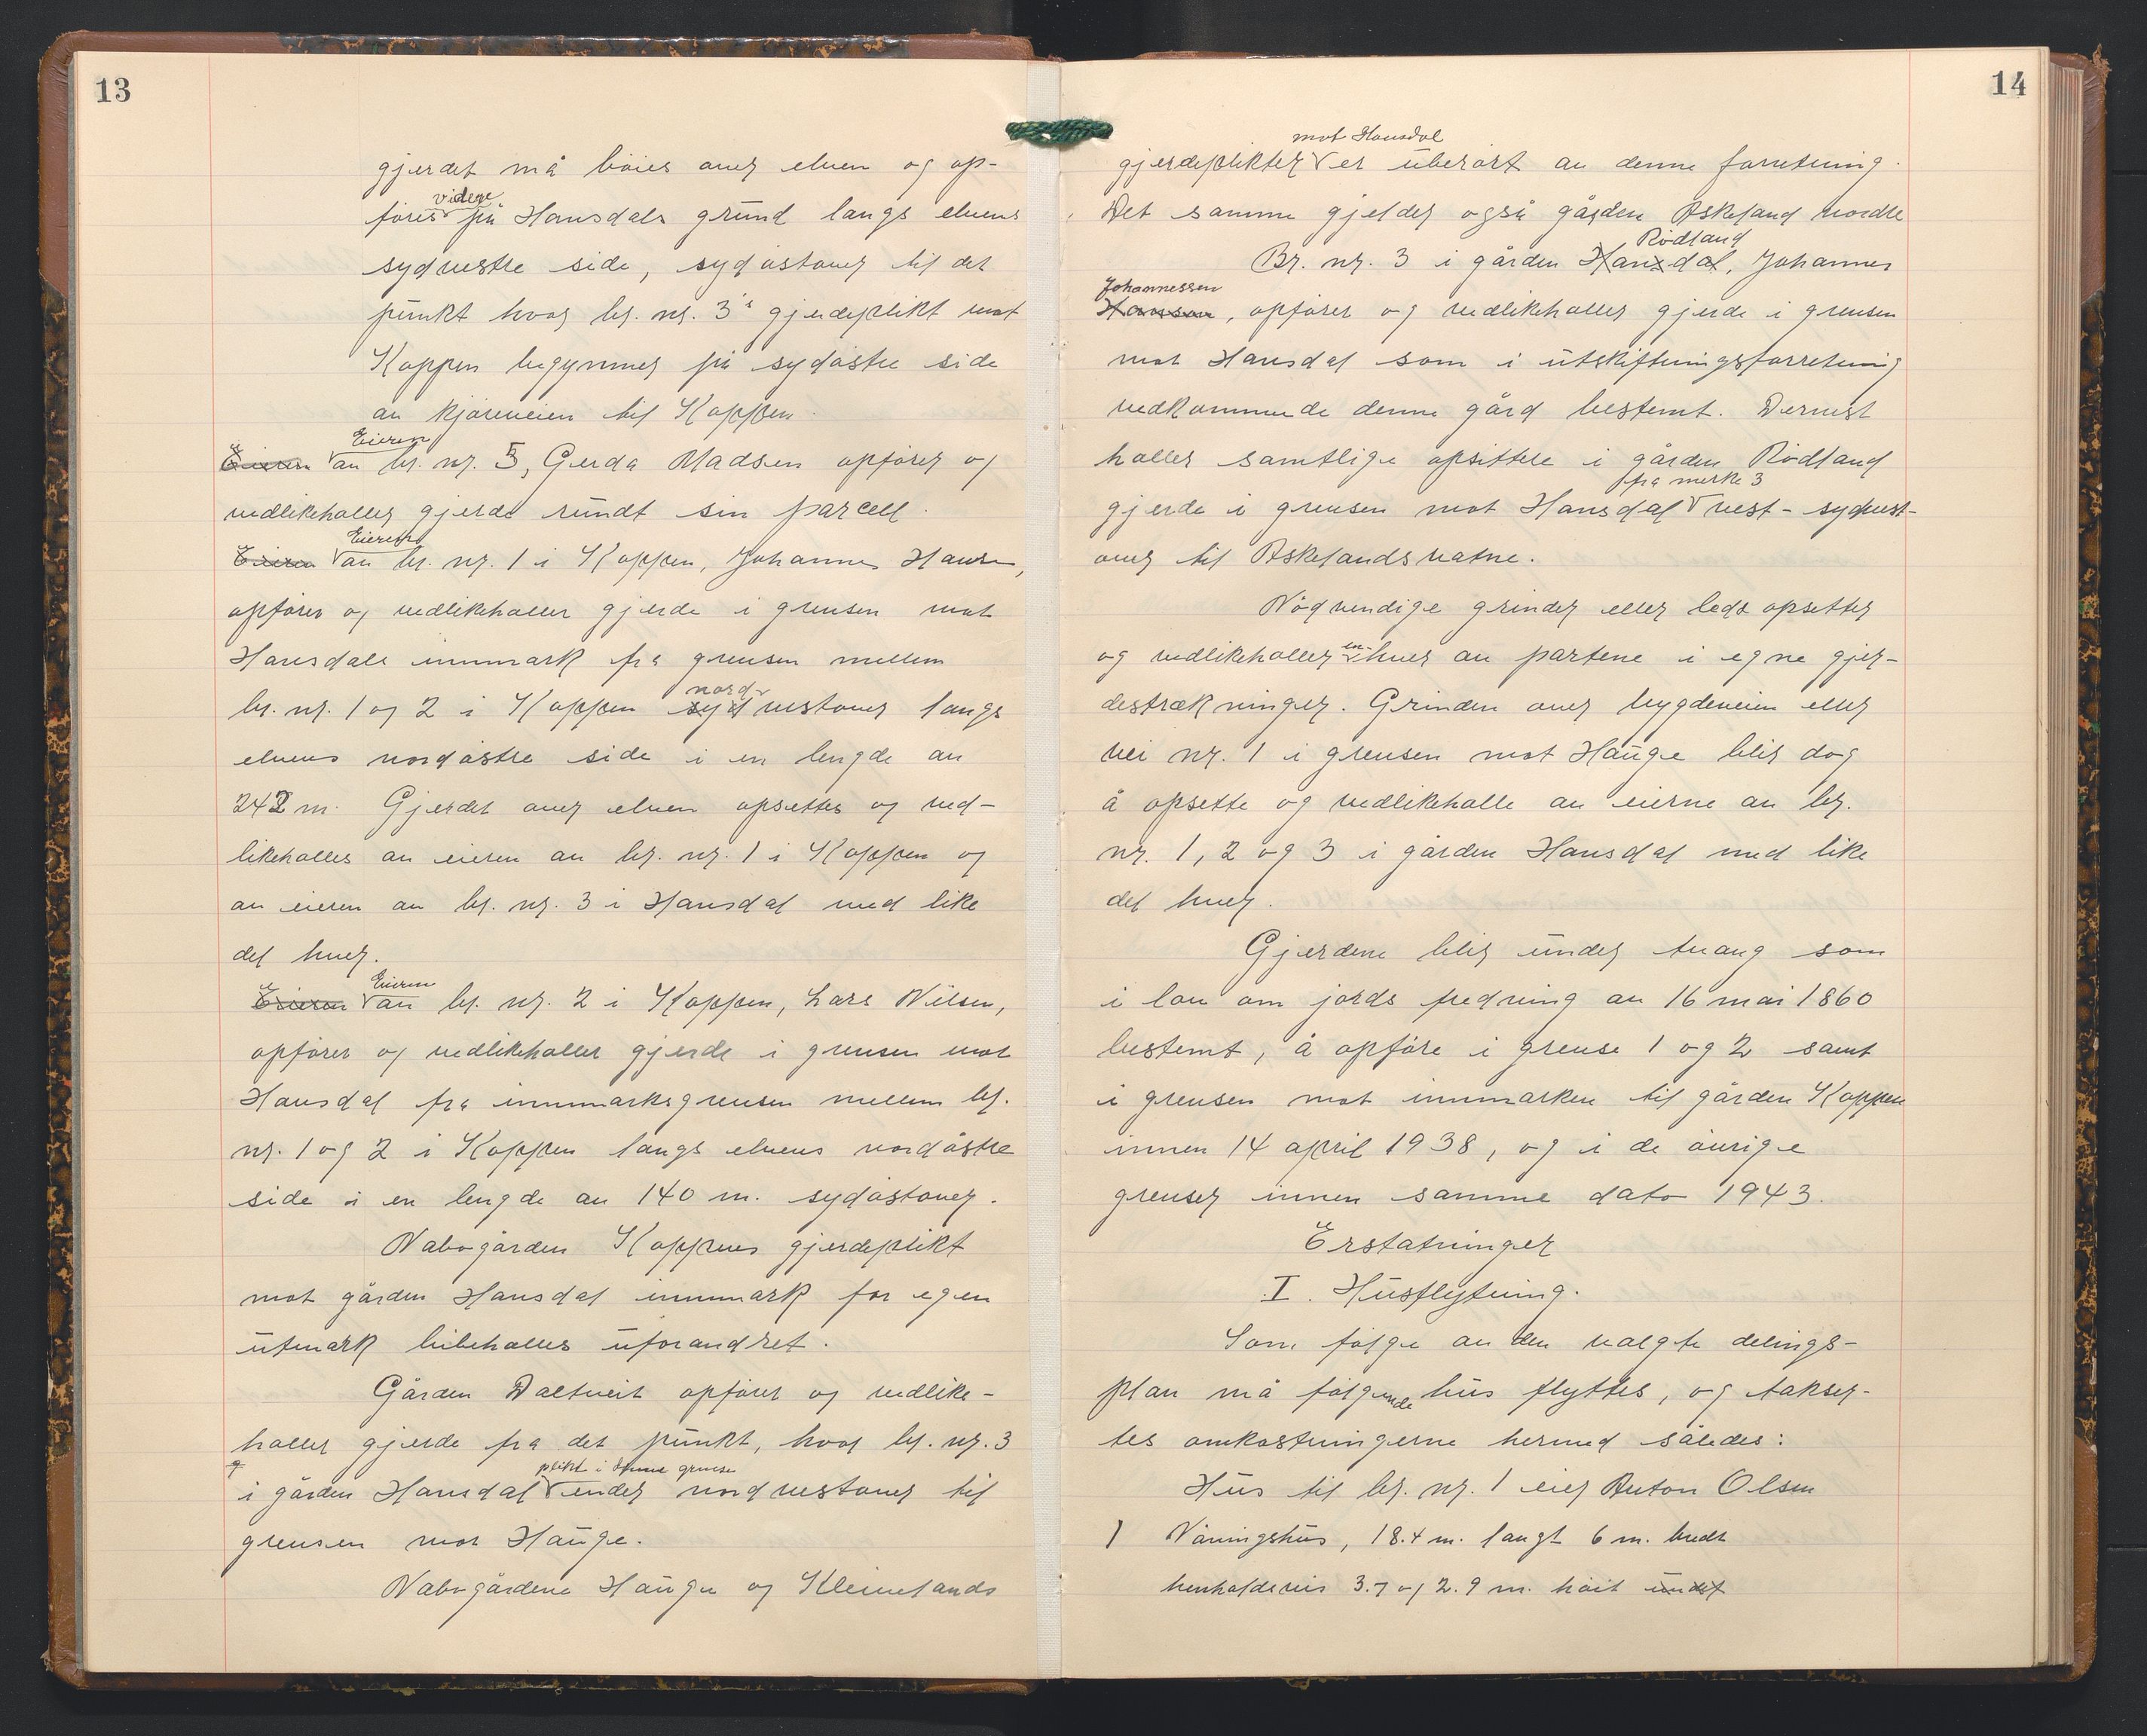 13
gjerdet må böies over elven og op-
föres videre på Hansdals grund langs elvens
sydvestre side, sydöstover til det
punkt hvor br. nr. 3's gjerdeplikt mot
Koppen begynner på sydöstre side
av kjöreveien til Koppen.
Eieren Eieren av br. nr. 5, Gerda Madsen opförer og
vedlikeholler gjerde rundt sin parcell.
Eieren Eieren av br. nr. 1 i Koppen, Johannes Hansen,
opförer og vedlikeholler gjerde i grensen mot
Hansdals innmark fra grensen mellem
br. nr. 1 og 2 i Koppen syd nordvestover langs
elvens nordöstre side i en lengde av
242 m. Gjerdet over elven opsettes og ved-
likeholles av eieren av br. nr. 1 i Koppen og
av eieren av br. nr. 3 i Hansdal med like
del hver.
Eieren Eieren av br. nr. 2 i Koppen, Lars Nilsen,
opförer og vedlikeholler gjerde i grensen mot
Hansdal fra innmarksgrensen mellem br.
nr. 1 og 2 i Koppen langs elvens nordöstre
side i en lengde av 140 m. sydöstover.
Nabogården Koppens gjerdeplikt
mot gården Hansdal innmark for egen
utmark bibeholles uforandret.
Gården Daltveit opförer og vedlike-
holler gjerde fra det punkt, hvor br. nr. 3
i gården Hansdal plikt i denne grense ender nordvestover til
grensen mot Hauge.
Nabogårdene Hauge og Kleivelands
14
gjerdeplikter mot Hansdal er uberört av denne forretning.
Det samme gjelder også gården Askeland nordre
Br. nr. 3 i gården Hansdal Rödland, Johannes
Hanson Johannessen, opförer og vedlikeholler gjerde i grensen
mot Hansdal som i utskiftningsforretning
vedkommende denne gård bestemt. Dernest
holler samtlige opsittere i gården Rödland
gjerde i grensen mot Hansdal fra merke 3 vest-sydvest-
over til Askelandsvatne.
Nödvendige grinder eller ledd opsetter
og vedlikeholler en hver av partene i egne gjer-
destrækninger. Grinden over bygdeveien eller
vei nr. 1 i grensen mot Hauge blir dog
å opsette og vedlikeholle av eierne av br.
nr. 1, 2 og 3 i gården Hansdal med like
del hver.
Gjerdene blir under tvang som
i lov om jords fredning av 16 mai 1860
bestemt, å opföre i grense 1 og 2 samt
i grensen mot innmarken til gården Koppen
innen 14 april 1938, og i de övrige
grenser innen samme dato 1943.
Erstatninger
I. Husflytning.
Som fölge av den valgte delings-
plan må fölgende hus flyttes, og takser-
tes omkostningerne hermed således:
Hus til br. nr. 1 eier Anton Olsen
1 Våningshus, 18.4 m. langt 6 m. bredt
henholdsvis 3.7 og 2.9 m. höit undet